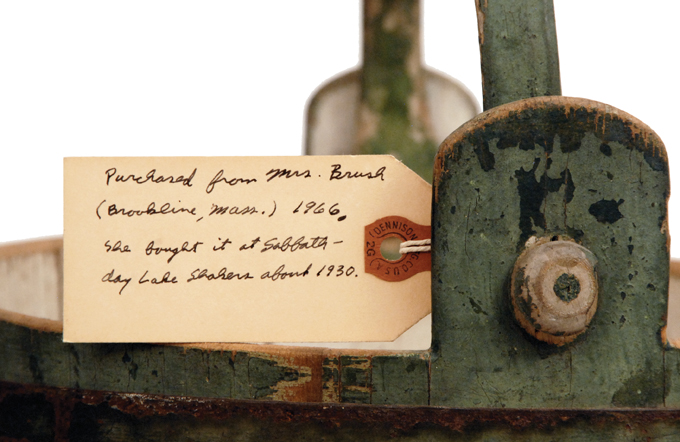 Purchased from Mrs. Brush
(Brookline, Mass.) 1966.
She bought it at Sabbath-
day Lake Shakers about 1930.
DENNISON
2G
U.S.A.